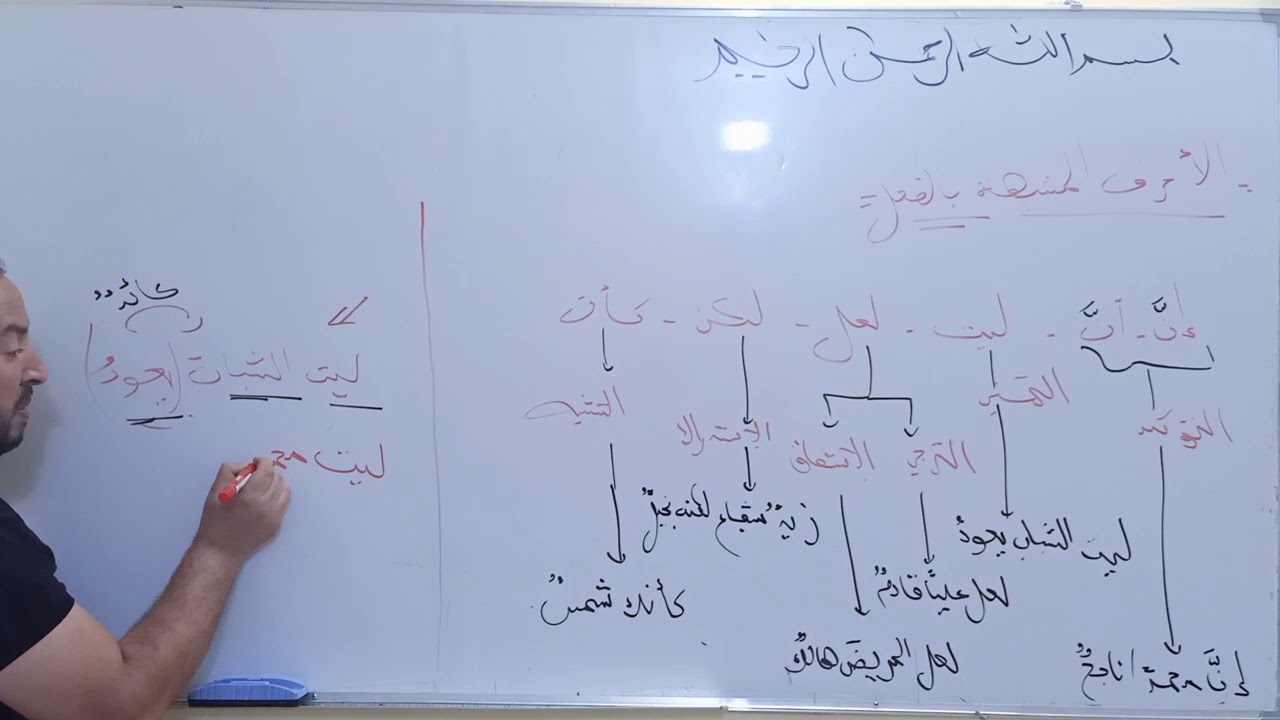 بسم الله الرحمن الرحيم
- الأحرف المشبهة بالفعل =
إنَّ - أنَّ - ليت - لعل - لكن - كأن
التوكيد التمني الترجي الاشفاق الاستدراك التشبيه
ليت الشباب يعودُ
زيدٌ شجاع لكنه بخيلٌ
لعل علياً قادمٌ
كأنك شمسٌ
لعل المريضَ هالكٌ
إنَّ محمداً ناجحٌ
كائنٌ
ليت الشباب (يعودُ)
ليت محمد